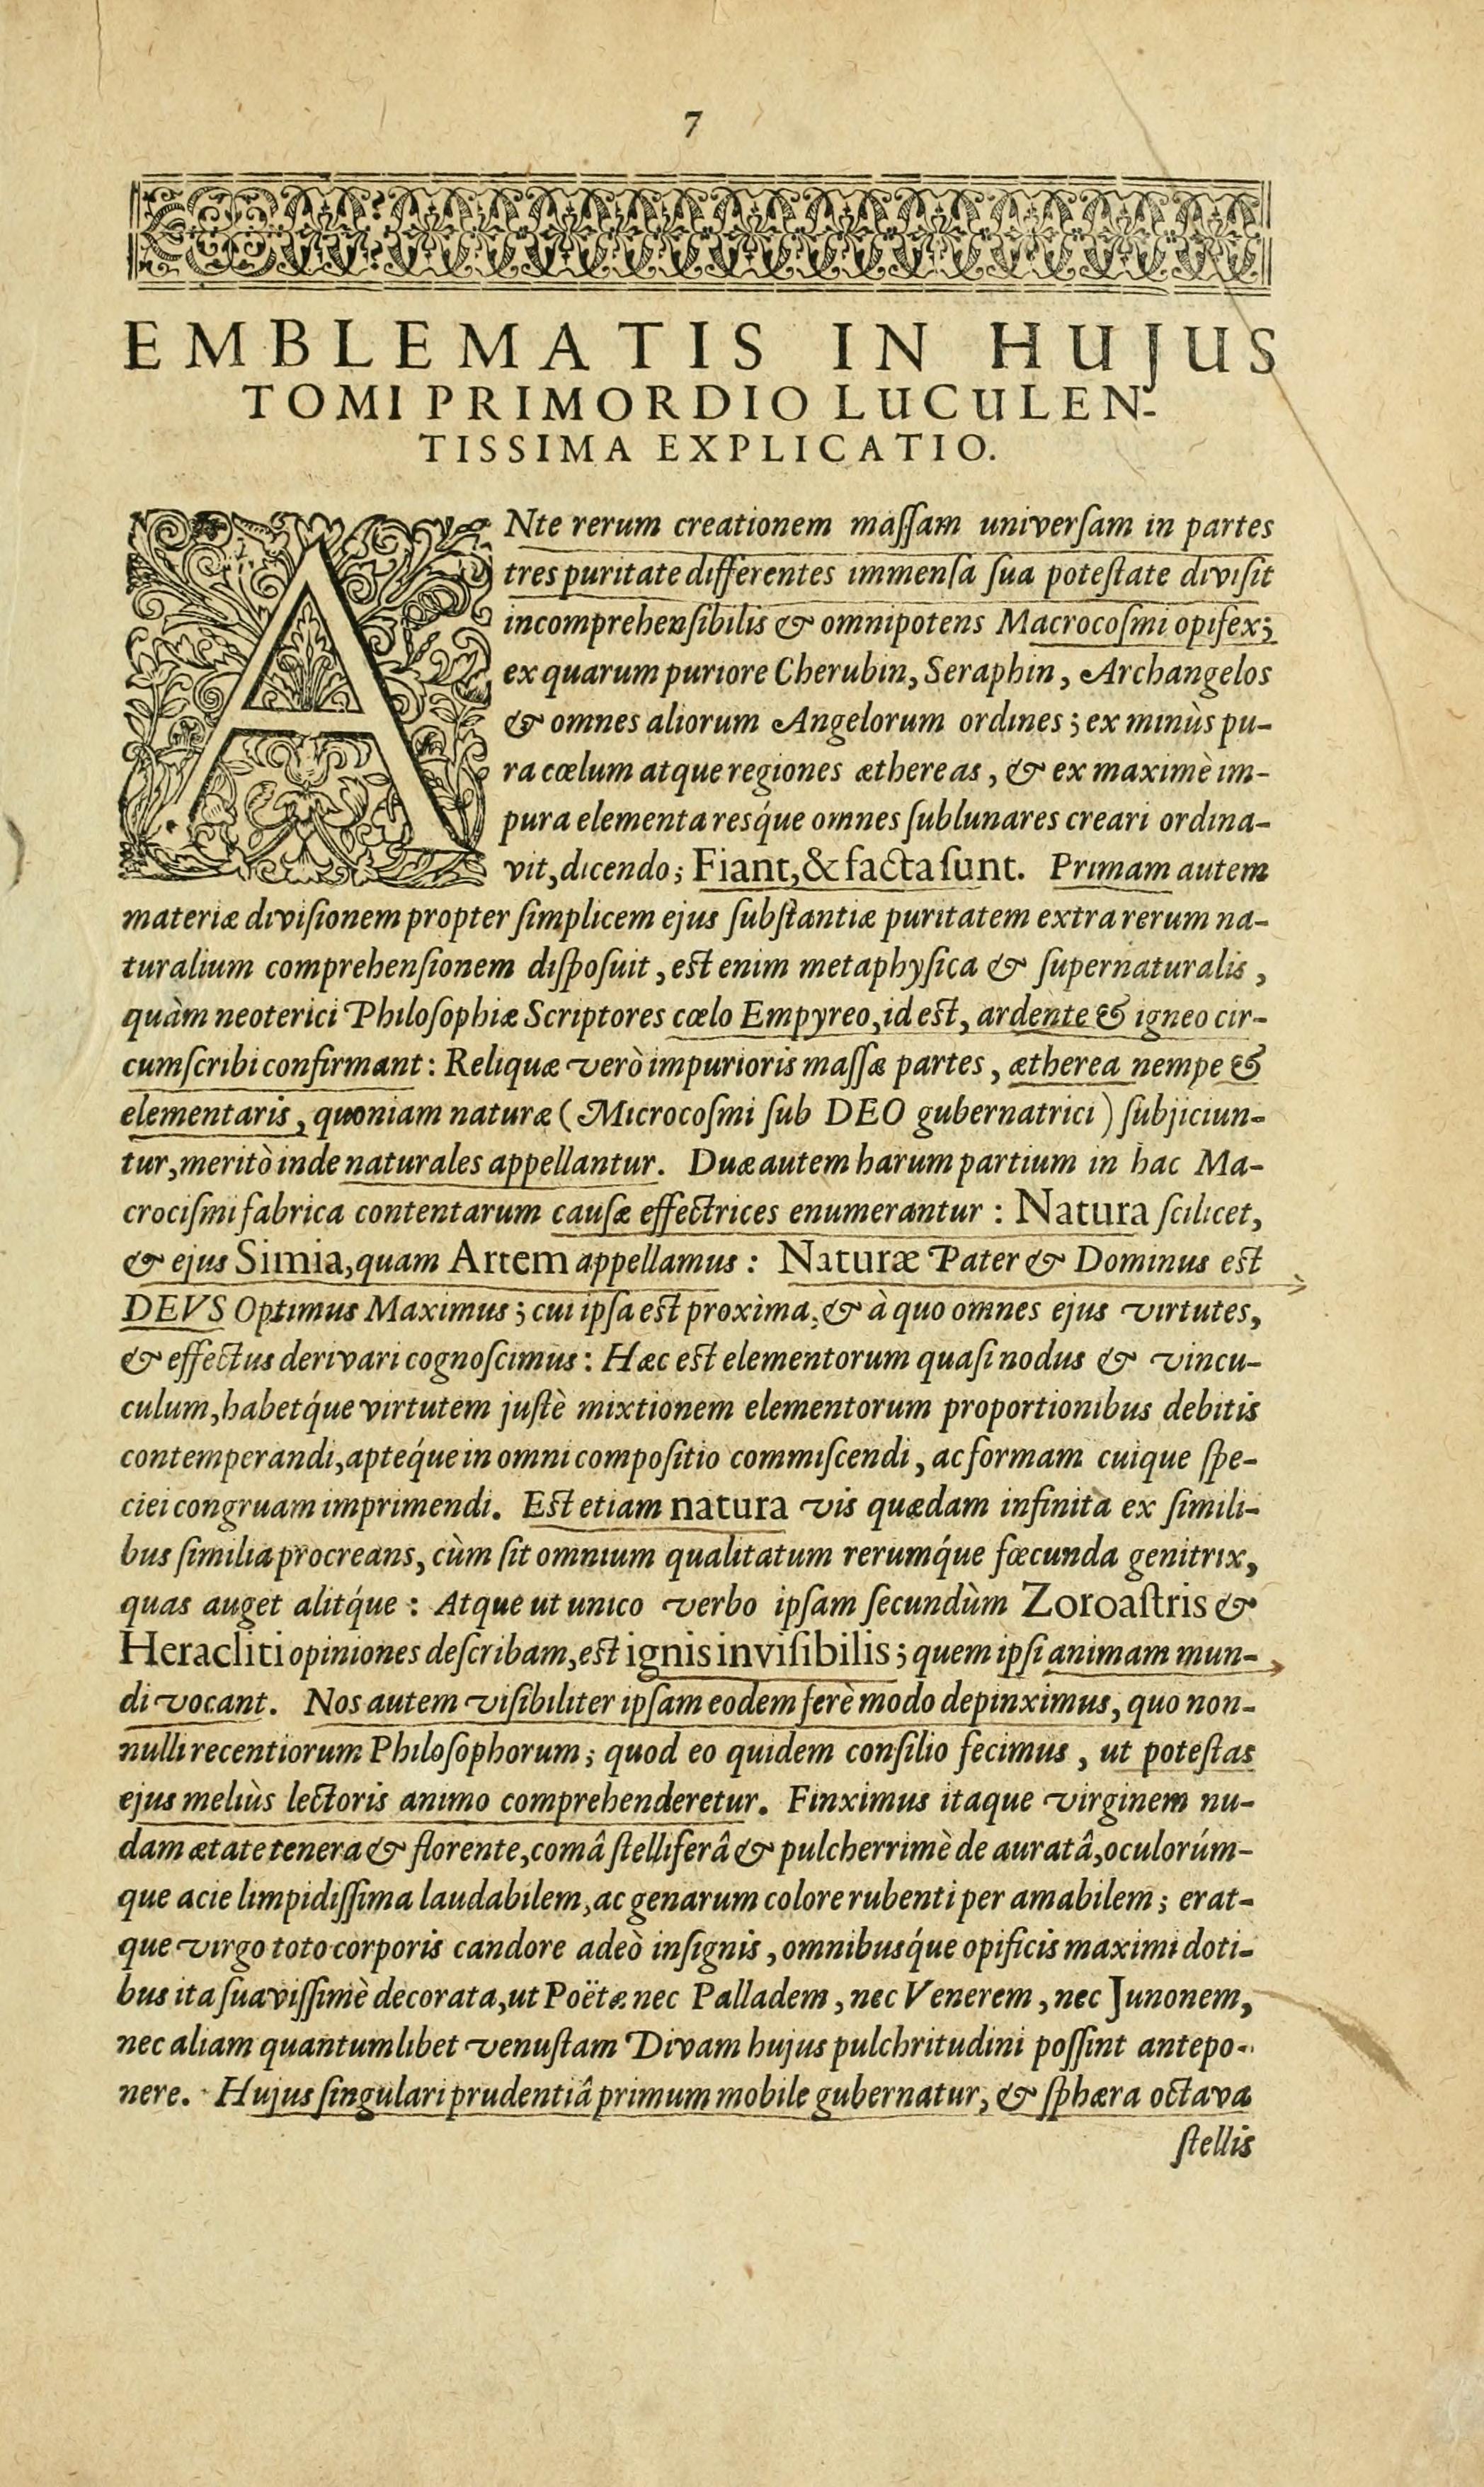 7
EMBLEMATIS IN HUJUS
TOMI PRIMORDIO LUCULEN-
TISSIMA EXPLICATIO.
ANte rerum creationem maſſam univerſam in partes
tres puritate differentes immenſa ſua poteſtate diviſit
incomprehenſibilis & omnipotens Macrocoſmi opifex;
ex quarum puriore Cherubin, Seraphin, Archangelos
& omnes aliorum Angelorum ordines; ex minùs pu-
ra cœlum atque regiones æthereas, & ex maximè im-
pura elementa resq́ue omnes ſublunares creari ordina-
vit, dicendo; Fiant, & facta ſunt. Primam autem
materiæ diviſionem propter ſimplicem ejus ſubſtantiæ puritatem extra rerum na-
turalium comprehenſionem diſpoſuit, est enim metaphyſica & ſupernaturalis,
quàm neoterici Philoſophiæ Scriptores cœlo Empyreo, id est, ardente & igneo cir-
cumſcribi confirmant: Reliquæ verò impurioris maſſæ partes, ætherea nempe &
elementaris, quoniam naturæ (Microcoſmi ſub DEO gubernatrici) ſubjiciun-
tur, meritò inde naturales appellantur. Duæ autem harum partium in hac Ma-
crociſmi fabrica contentarum cauſæ effectrices enumerantur: Natura ſcilicet,
& ejus Simia, quam Artem appellamus: Naturæ Pater & Dominus est
DEVS Optimus Maximus; cui ipſa est proxima, & à quo omnes ejus virtutes,
& effectus derivari cognoſcimus: Hæc est elementorum quaſi nodus & vincu-
culum, habetq́ue virtutem juſtè mixtionem elementorum proportionibus debitis
contemperandi, apteq́ue in omni compoſitio commiſcendi, ac formam cuique ſpe-
ciei congruam imprimendi. Est etiam natura vis quædam infinita ex ſimili-
bus ſimilia procreans, cùm ſit omnium qualitatum rerumq́ue fœcunda genitrix,
quas auget alitq́ue: Atque ut unico verbo ipſam ſecundùm Zoroaſtris &
Heracliti opiniones deſcribam, est ignis inviſibilis; quem ipſi animam mun-
di vocant. Nos autem viſibiliter ipſam eodem ferè modo depinximus, quo non-
nulli recentiorum Philoſophorum; quod eo quidem conſilio fecimus, ut poteſtas
ejus meliùs lectoris animo comprehenderetur. Finximus itaque virginem nu-
dam ætate tenera & florente, comâ ſtelliferâ & pulcherrimè de auratâ, oculorúm-
que acie limpidiſſima laudabilem, ac genarum colore rubenti per amabilem; erat-
que virgo toto corporis candore adeò inſignis, omnibusq́ue opificis maximi doti-
bus ita ſuaviſſimè decorata, ut Poëtæ nec Palladem, nec Venerem, nec Junonem,
nec aliam quantumlibet venuſtam Divam hujus pulchritudini poſſint antepo-
nere. Hujus ſingulari prudentiâ primum mobile gubernatur, & ſphæra octava
ſtellis